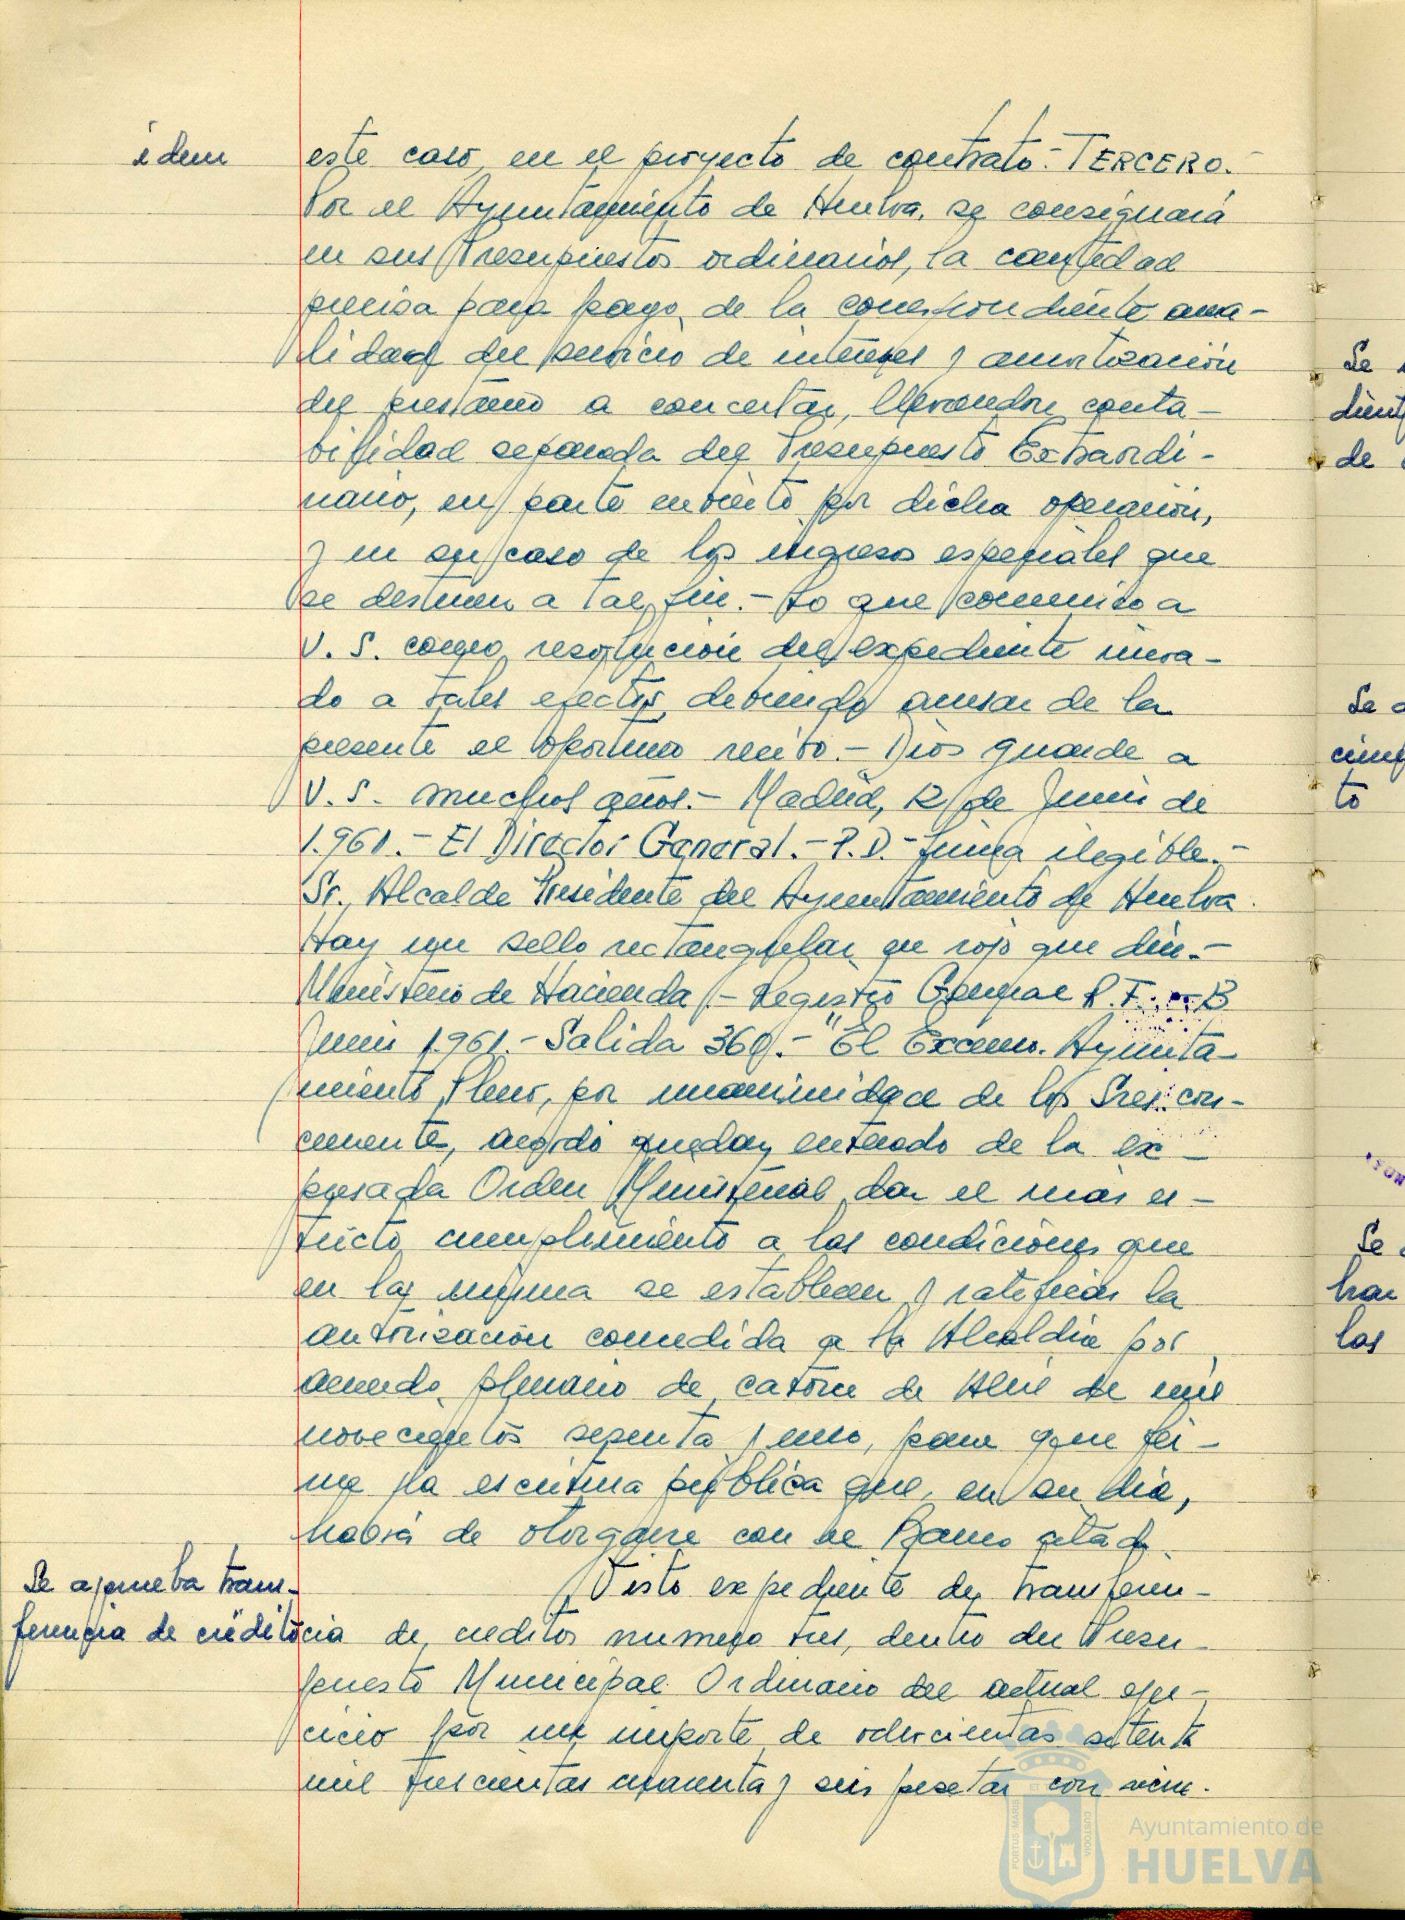 idem
este caso, en el proyecto de contrato.- TERCERO.-
Por el Ayuntamiento de Huelva, se consignará
en sus Presupuestos ordinarios, la cantidad
precisa para pago, de la correspondiente anua-
lidad del servicio de intereses y amortización
del prestamo a concertar, llevandose conta-
bilidad separada del Presupuesto Extraordi-
nario, en parte cubierto por dicha operación,
y en su caso de los ingresos especiales que
se destinen a tal fin.- Lo que comunico a
V. S. como resolución del expediente incoa-
do a tales efectos, debiendo acusar de la
presente el oportuno recibo.- Dios guarde a
V. S. muchos años.- Madrid, 12 de Junio de
1.961.- El Director General.- P.D.- Firma ilegible.-
Sr. Alcalde Presidente del Ayuntamiento de Huelva.
Hay un sello rectangular en rojo que dice.-
Ministerio de Hacienda.- Registro General
Junio 1.961.- Salida 360.- "El Excmo. Ayunta-
miento Pleno, por unanimidad de los Sres. con-
currente, acordó quedar enterado de la ex-
presada Orden Ministerial, dar el más es-
tricto cumplimiento a las condiciones que
en la misma se establecen y ratificar la
autorización concedida a la Alcaldia por
acuerdo plenario de catorce de Abril de mil
novecientos sesenta y uno, para que fir-
me la escritura pública que, en su dia,
habrá de otorgarse con el Banco citado.
Se aprueba trans-
ferencia de créditos
Visto expediente de transferen-
cia de creditos numero tres, dentro del Presu-
puesto Municipal Ordinario del actual ejer-
cicio por un importe de doscientas setenta
mil trescientas cuarenta y seis pesetas con vein-
Se
de
Se
to
Se
los
PORTUS MARIS
ET
CUSTODIA
Ayuntamiento de
HUELVA